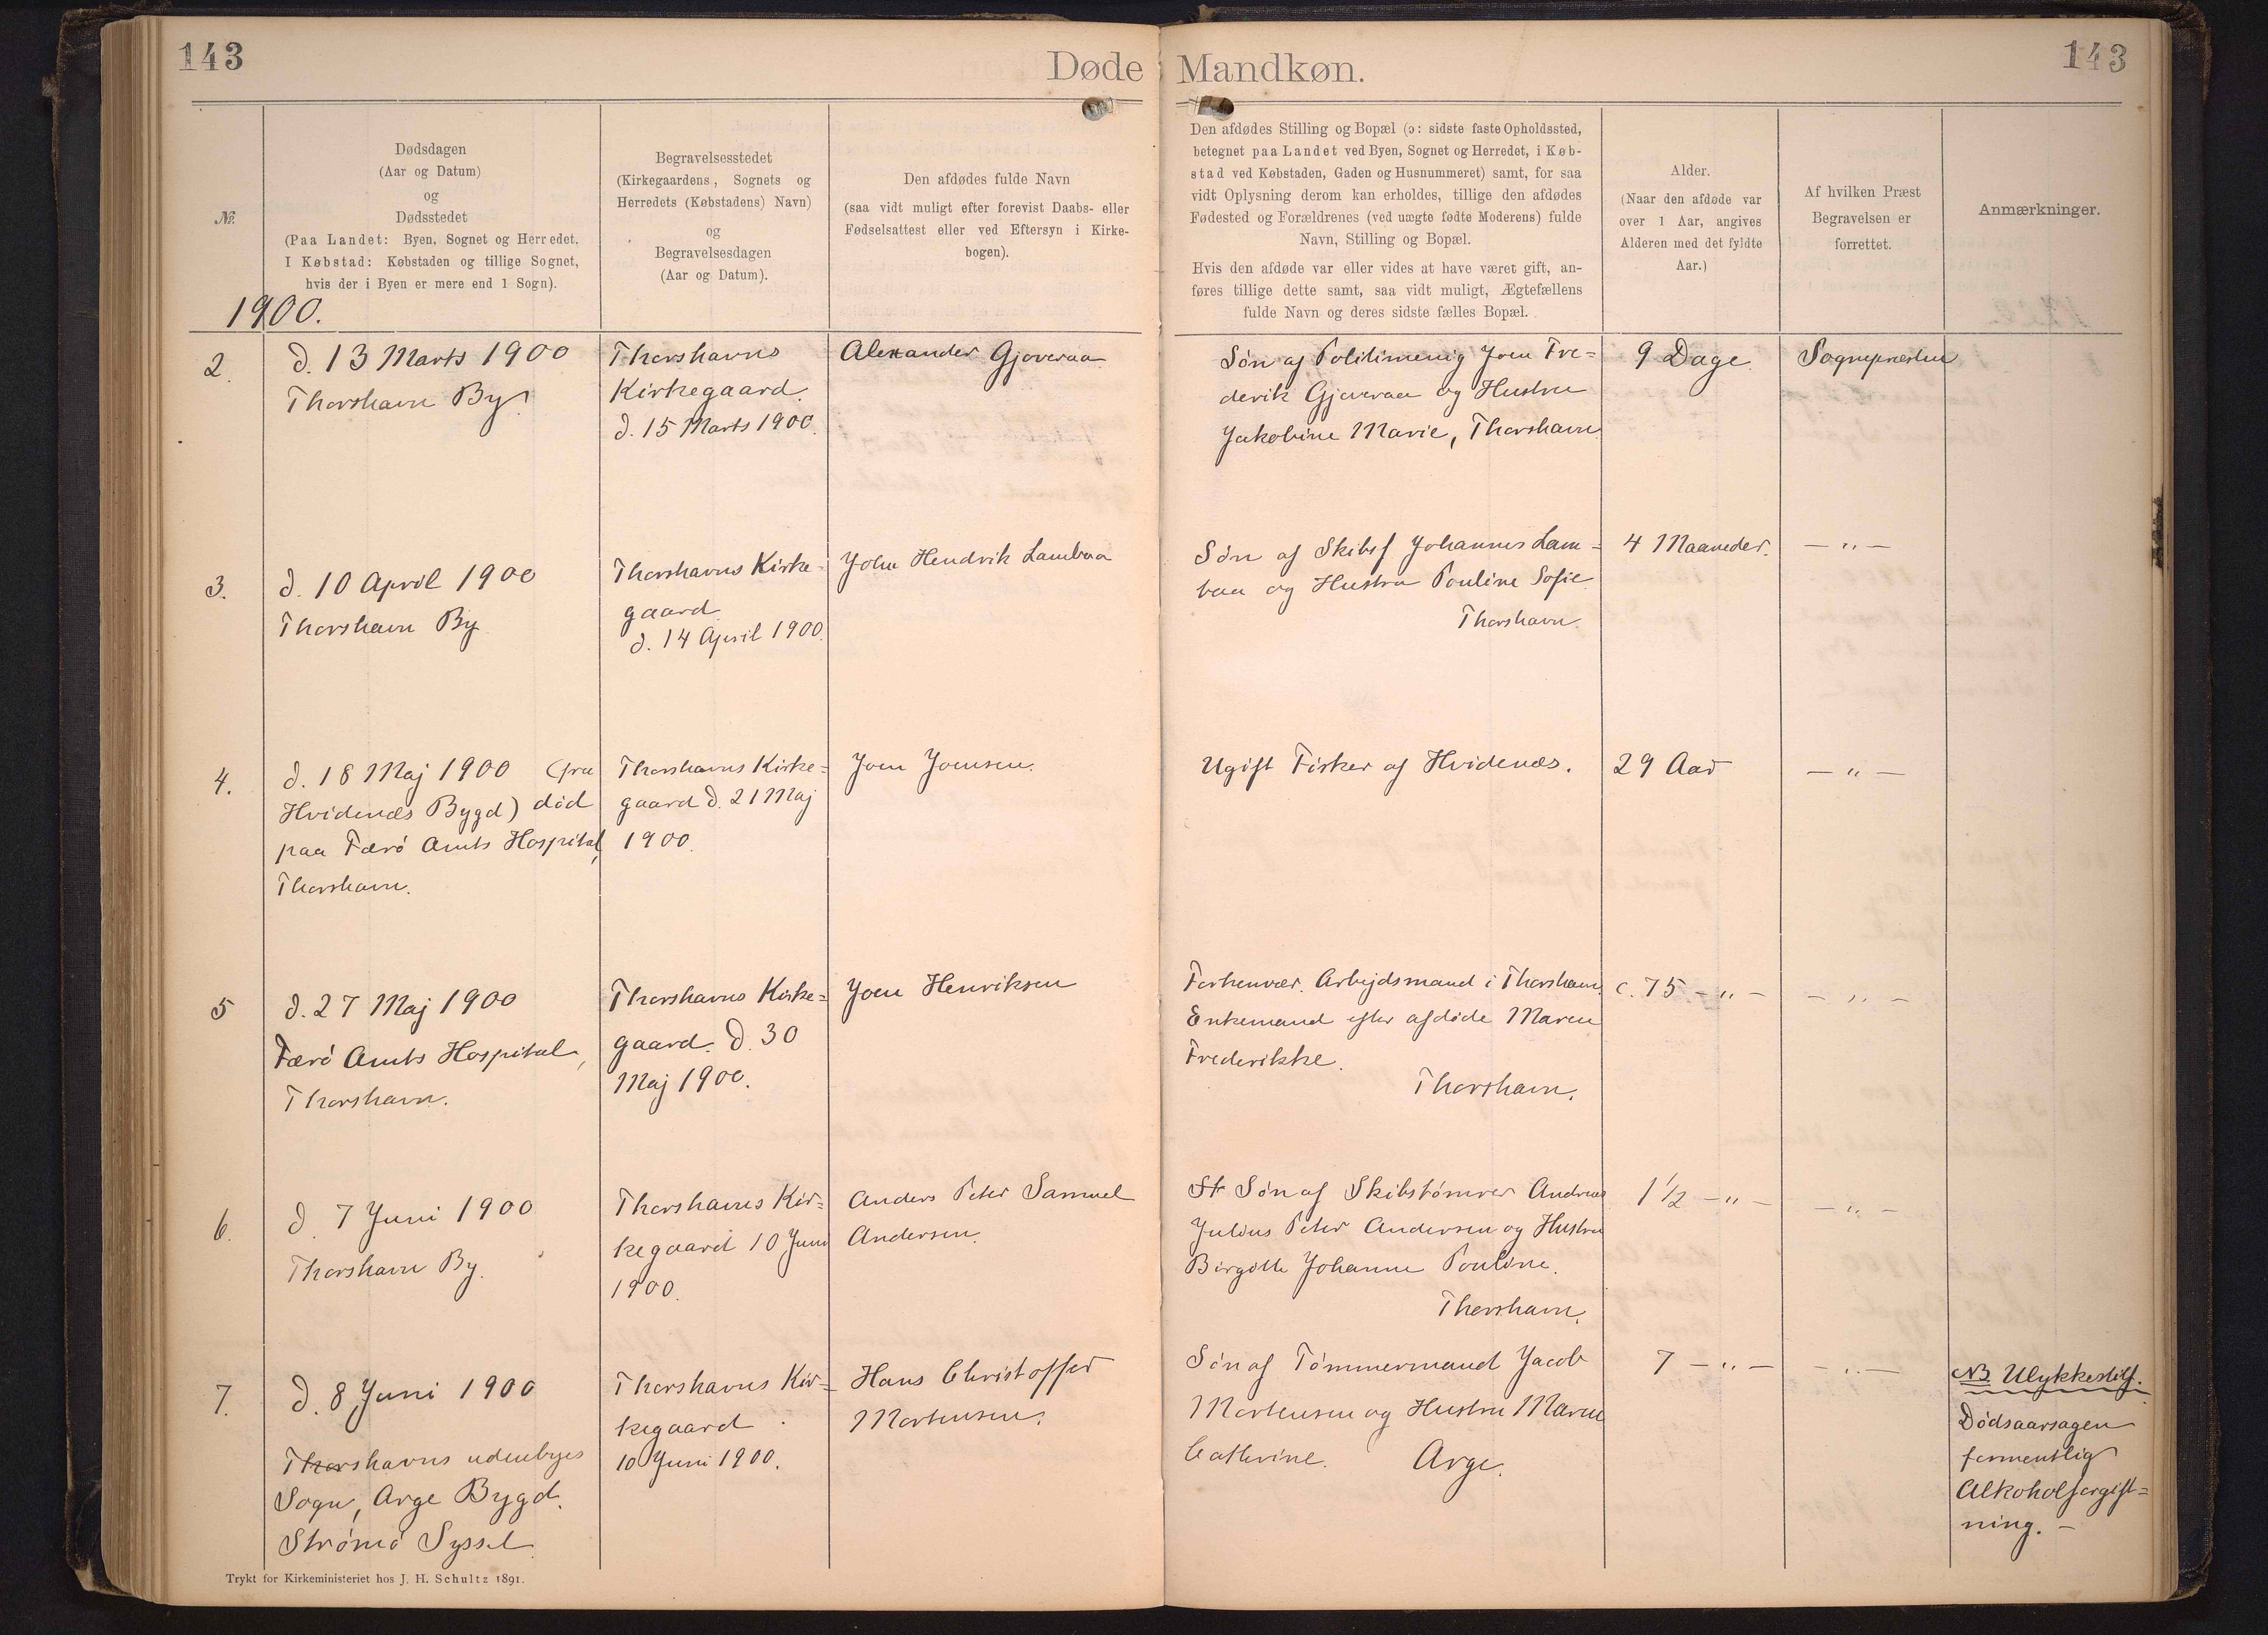 143
Døde
Mandkøn.
143
№
Dødsdagen
(Aar og Datum)
og
Dødsstedet
(Paa Landet: Byen, Sognet og Herredet,
I Købstad: Købstaden og tillige Sognet,
hvis der i Byen er mere end 1 Sogn).
Begravelsesstedet
(Kirkegaardens, Sognets og
Herredets (Købstadens) Navn)
og
Begravelsesdagen
(Aar og Datum).
Den afdødes fulde Navn
(saa vidt muligt efter forevist Daabs- eller
Fødselsattest eller ved Eftersyn i Kirke-
bogen).
Den afdødes Stilling og Bopæl (ɔ: sidste faste Opholdssted,
betegnet paa Landet ved Byen, Sognet og Herredet, i Køb-
stad ved Købstaden, Gaden og Husnummeret) samt, for saa
vidt Oplysning derom kan erholdes, tillige den afdødes
Fødested og Forældrenes (ved uægte fødte Moderens) fulde
Navn, Stilling og Bopæl.
Hvis den afdøde var eller vides at have været gift, an-
føres tillige dette samt, saa vidt muligt, Ægtefællens
fulde Navn og deres sidste fælles Bopæl.
Alder.
(Naar den afdøde var
over 1 Aar, angives
Alderen med det fyldte
Aar.)
Af hvilken Præst
Begravelsen er
forrettet.
Anmærkninger.
1900.
2.
d. 13 Marts 1900
Thorshavn By
Thorshavns
Kirkegaard.
d. 15 Marts 1900.
Alexander Gjoveraa
Søn af Politimenig Joen Fre=
derik Gjoveraa og Hustru
Jakobine Marie, Thorshavn
9 Dage
Sognepræsten
3.
d. 10 April 1900
Thorshavn By
Thorshavns Kirke=
gaard
d. 14 April 1900.
John Hendrik Lambaa
Søn af Skibsf Johannes Lam=
baa og Hustru Pouline Sofie
Thorshavn.
4 Maaneder.
— „ —
4.
d. 18 Maj 1900 (fra
Hvidenæs Bygd) død
paa Færø Amts Hospital,
Thorshavn.
Thorshavns Kirke=
gaard d. 21 Maj
1900.
Joen Joensen.
Ugift Fisker af Hvidenæs.
29 Aar
— „ —
5
d. 27 Maj 1900
Færø Amts Hospital,
Thorshavn.
Thorshavns Kirke=
gaard. d. 30
Maj 1900.
Joen Henriksen
Forhenvær. Arbejdsmand i Thorshavn.
Enkemand efter afdøde Maren
Frederikke.
Thorshavn.
c. 75 — „ —
— „ —
6.
d. 7 Juni 1900
Thorshavn By.
Thorshavns Kir=
kegaard 10 Juni
1900.
Anders Peter Samuel
Andersen.
St Søn af Skibstømrer Andreas
Julius Peter Andersen og Hustru
Birgitte Johanne Pouline.
Thorshavn.
1 1/2 — „ —
— „ —
7.
d. 8 Juni 1900
Thorshavns udenbyes
Sogn, Arge Bygd.
Strømø Syssel.
Thorshavns Kir=
kegaard
10 Juni 1900.
Hans Christoffer
Mortensen.
Søn af Tømmermand Jacob
Mortensen og Hustru Maren
Cathrine. Arge.
7 — „ —
— „ —
NB Ulykkestilf.
Dødsaarsagen
formentlig
Alkoholforgift=
ning. —
Trykt for Kirkeministeriet hos J. H. Schultz 1891.